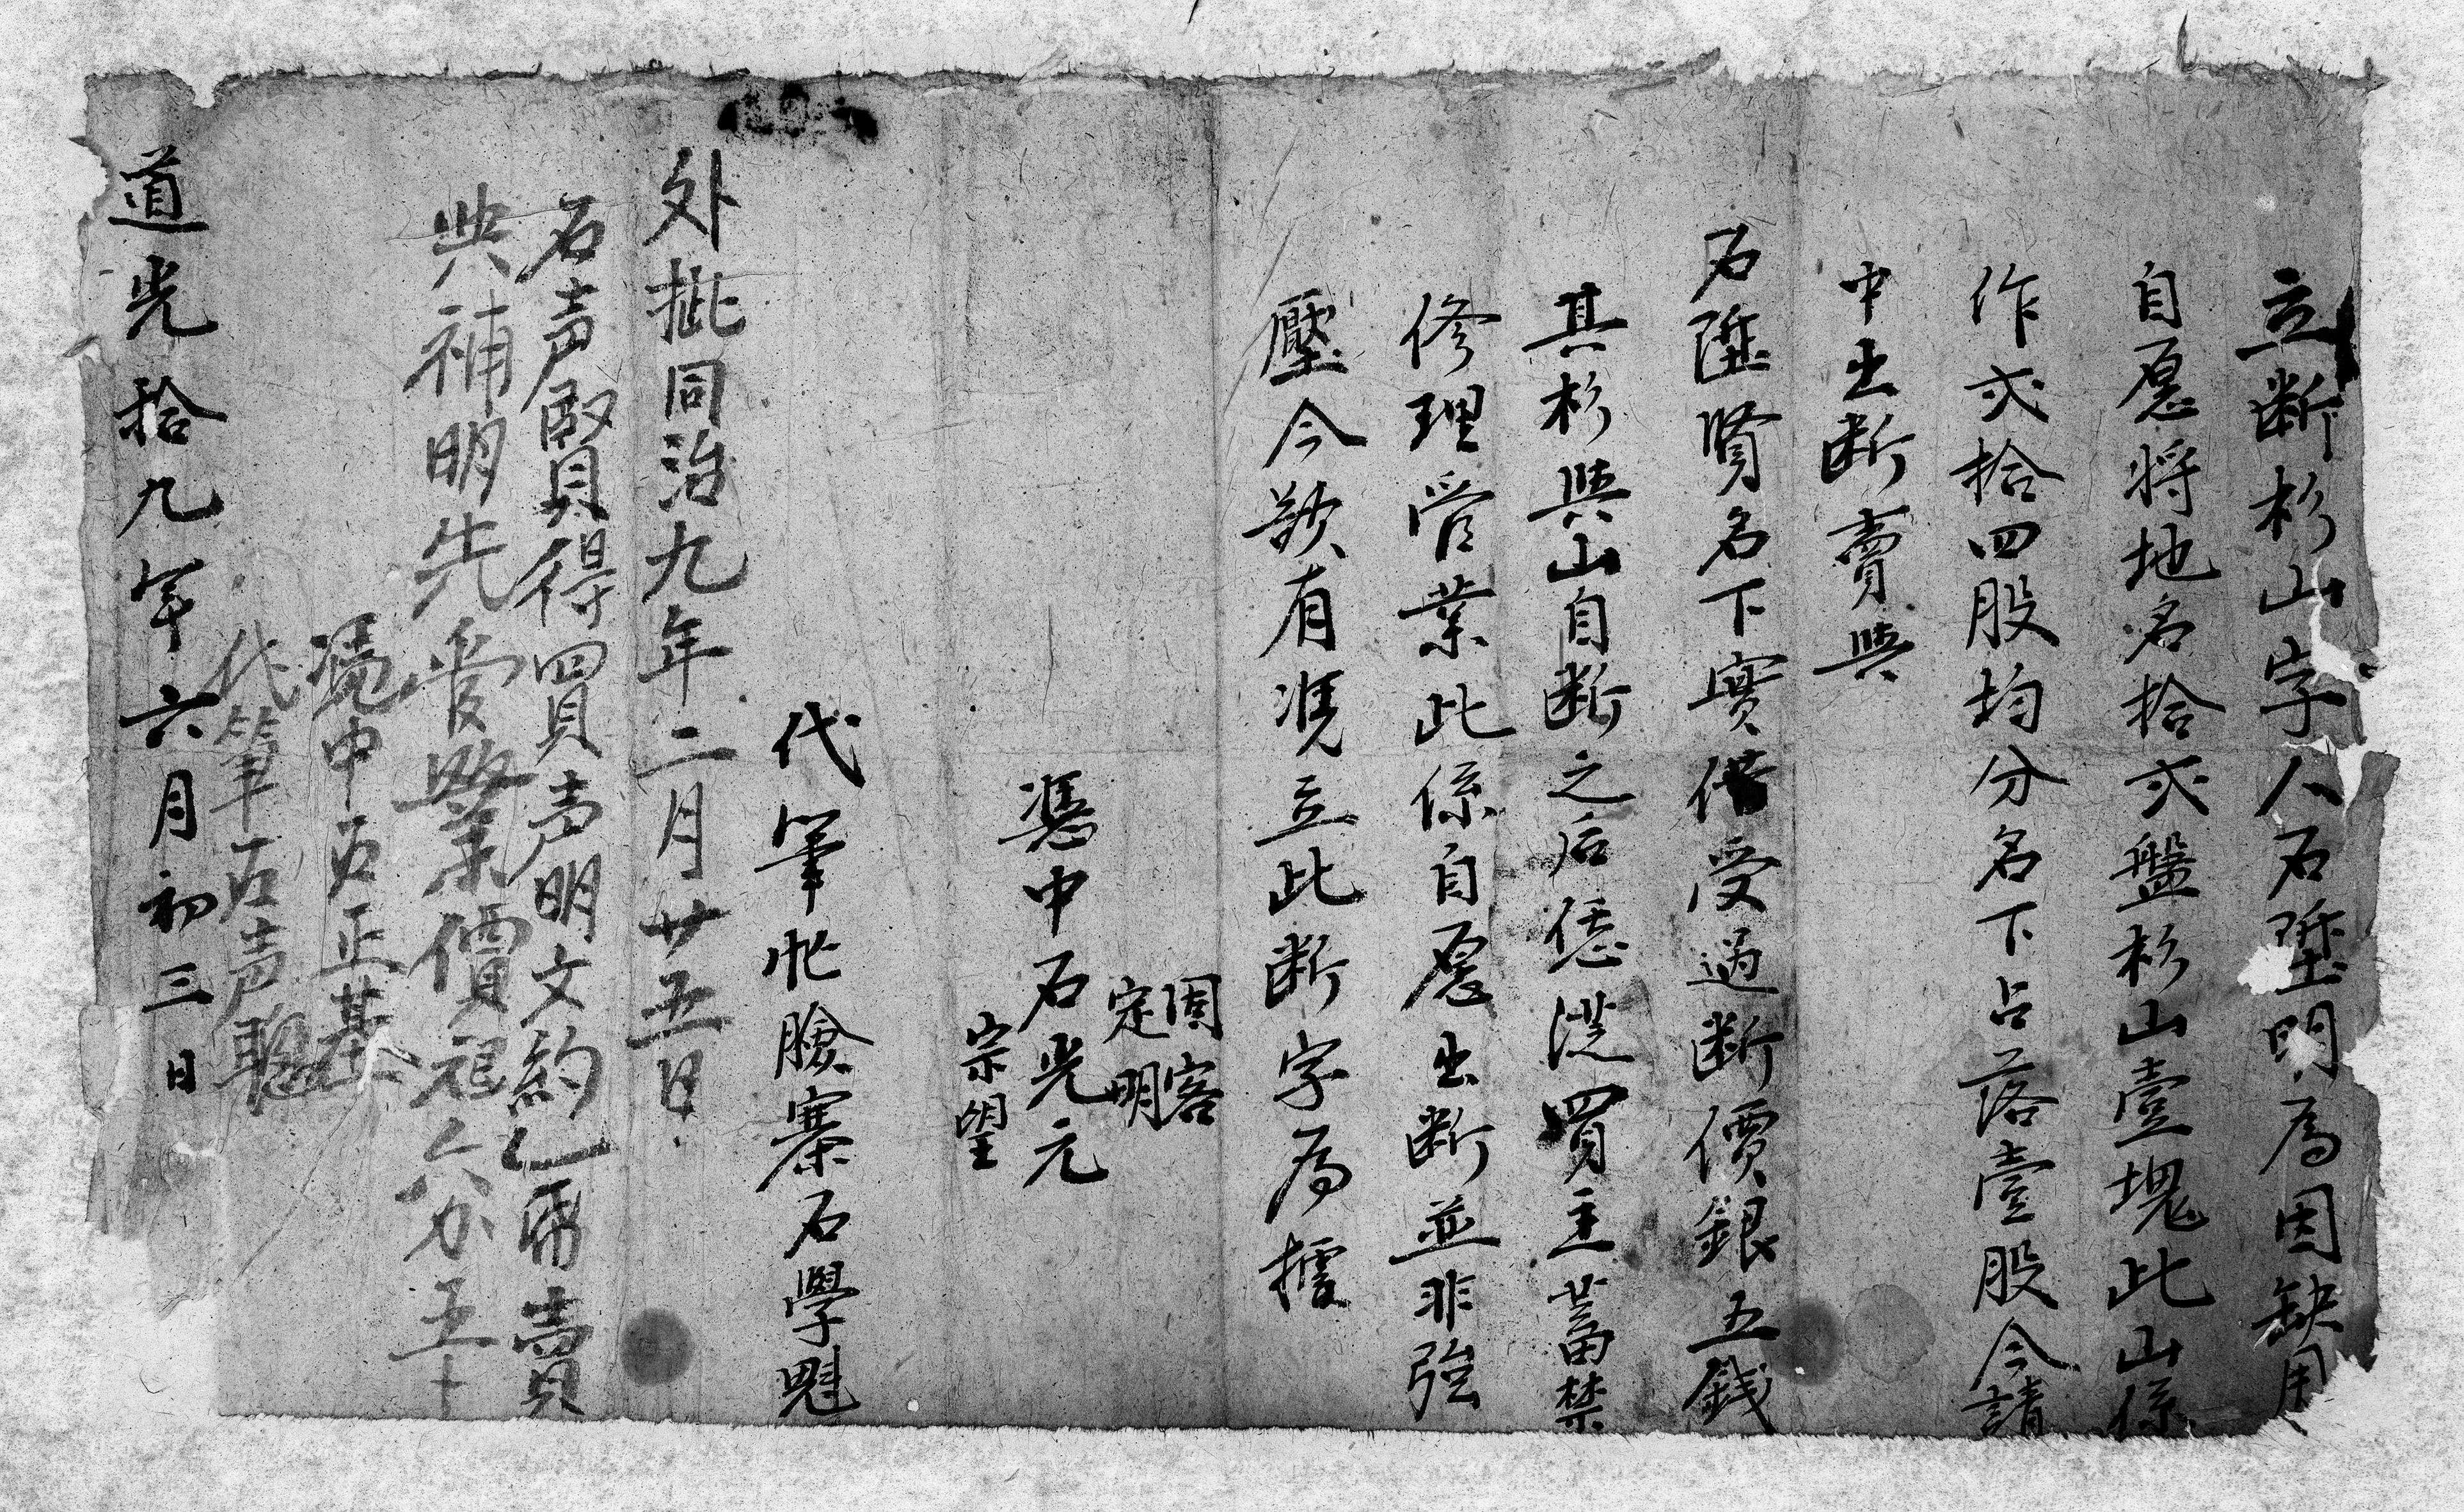 立断杉山字人石陞明為因缺用
自愿将地名拾弍盤杉山壹塊此山係
作弍拾四股均分名下占落壹股今請
中出断賣與
石陞賢名下實借受過断價銀五錢
其杉與山自断之后恁凴買主蓄禁
修理管業此係自愿出断並非強
壓今欲有凴立此断字為據
固客
定明
憑中石光元
宗望
代筆帐臉寨石學魁
外批同治九年二月廿五日
石声賢得買声明文約乙帋賣
與補明先管業價艮六分五十
凴中石正基
代筆石声聰
道光拾九年六月初三日